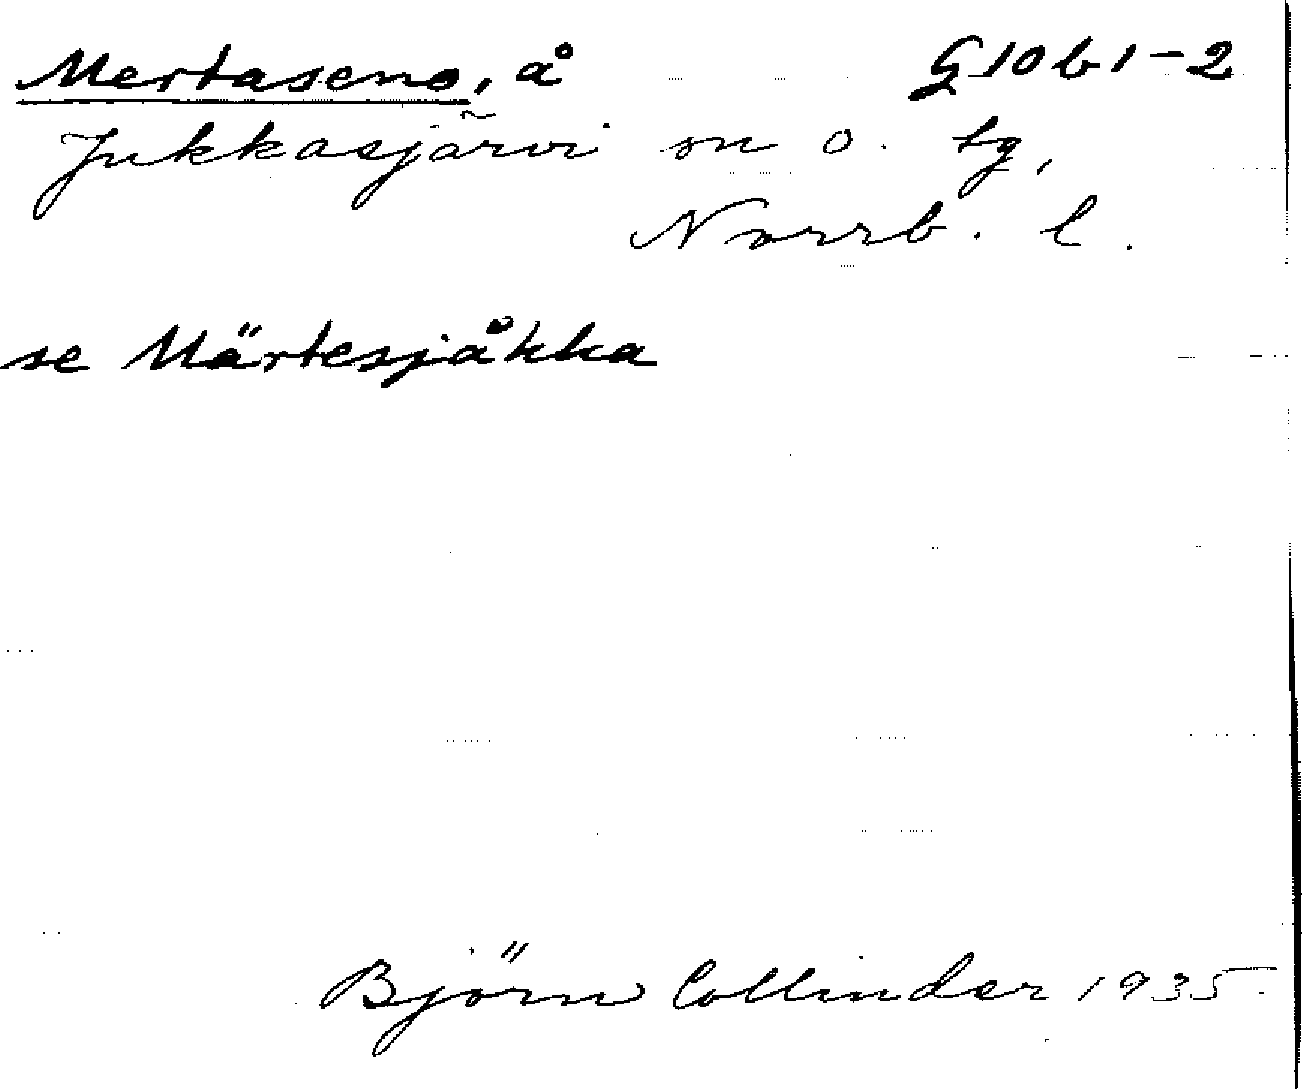 Mertaseno, å G 10 b 1-2
Jukkasjärvi sn o. tg,
Norrb. l.
se Märtesjåkka
Björn Collinder 1935